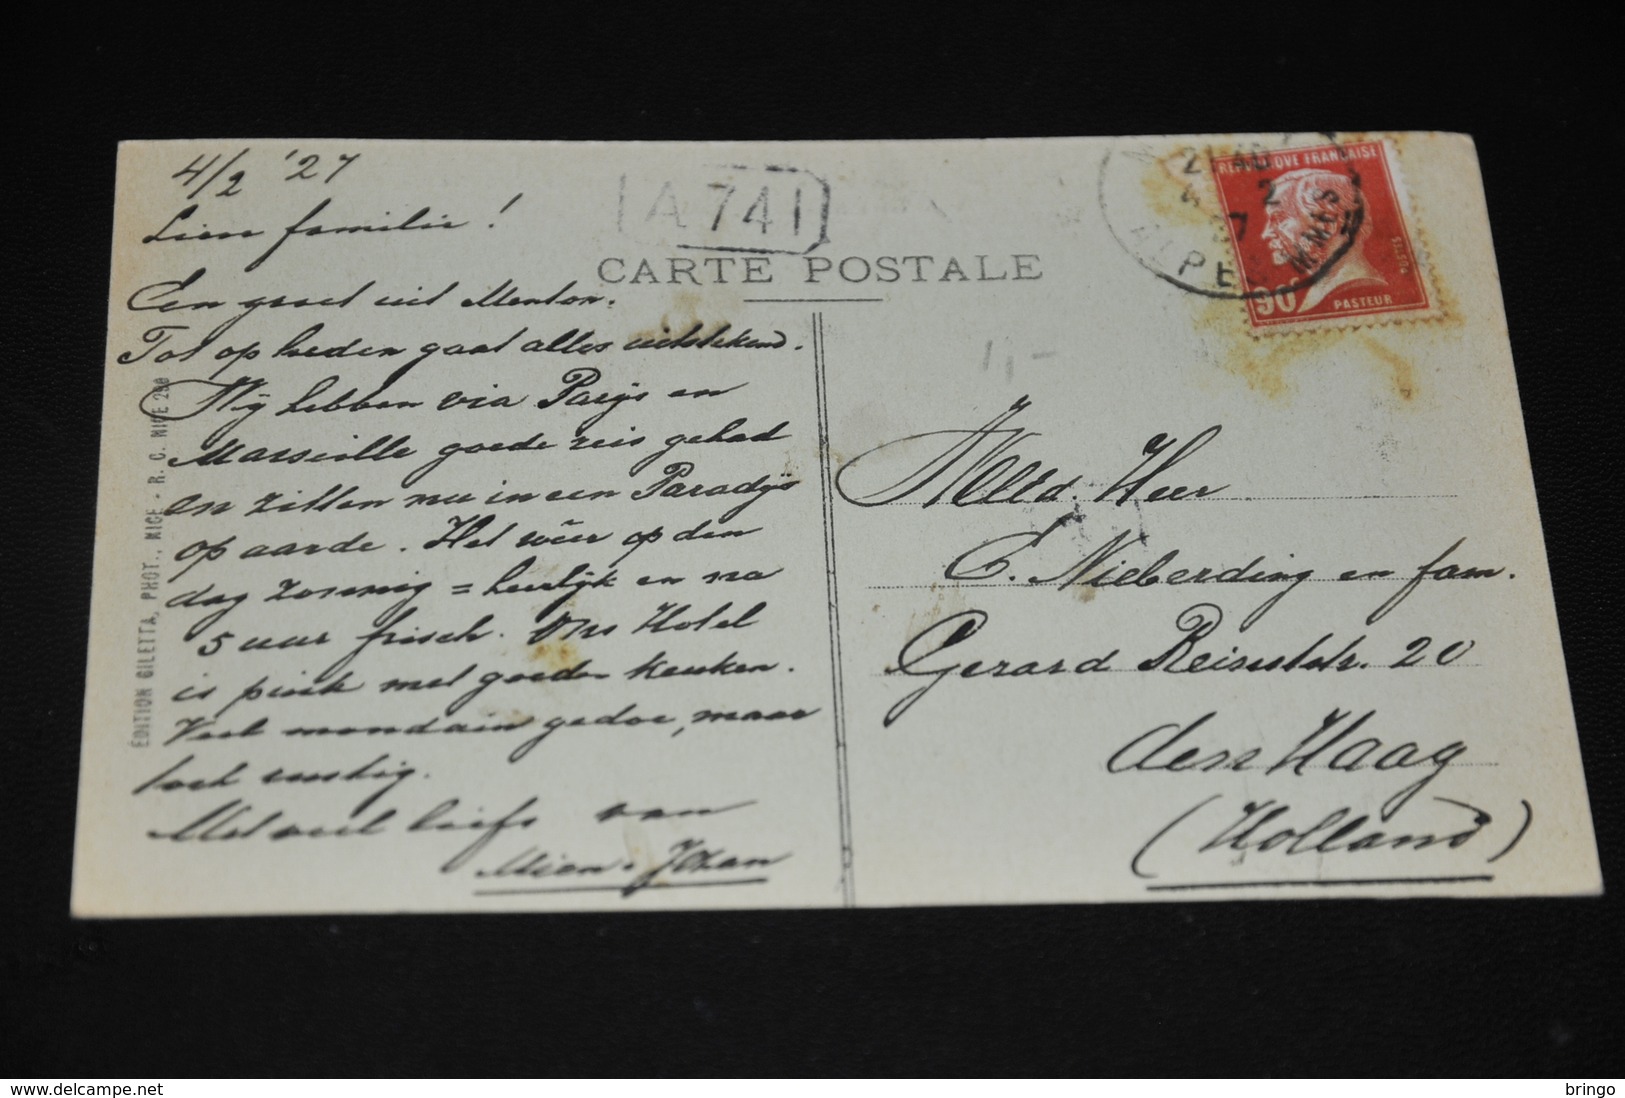 4/2 '27
Lieve familie!
Een groet uit Menton.
Tot op heden gaat alles uitstekend.
Wij hebben via Parijs en
Marseille goede reis gehad
en zitten nu in een Paradijs
op aarde. Het weer op den
dag zonnig = heerlijk en na
5 uur frisch. Ons Hotel
is piek met goede keuken.
Veel mondain gedoe, maar
toch rustig.
Met veel liefs van
Mien + Johan
ÉDITION GILETTA, PHOT., NICE - R. C. NICE
A 741
CARTE POSTALE
21
4 2
ALPES MMES
RÉPUBLIQUE FRANÇAISE
POSTES
90 PASTEUR
11-
WelEd. Heer
C. Nieberding en fam.
Gerard Reinststr. 20
den Haag
(Holland)
www.delcampe.net
bringo